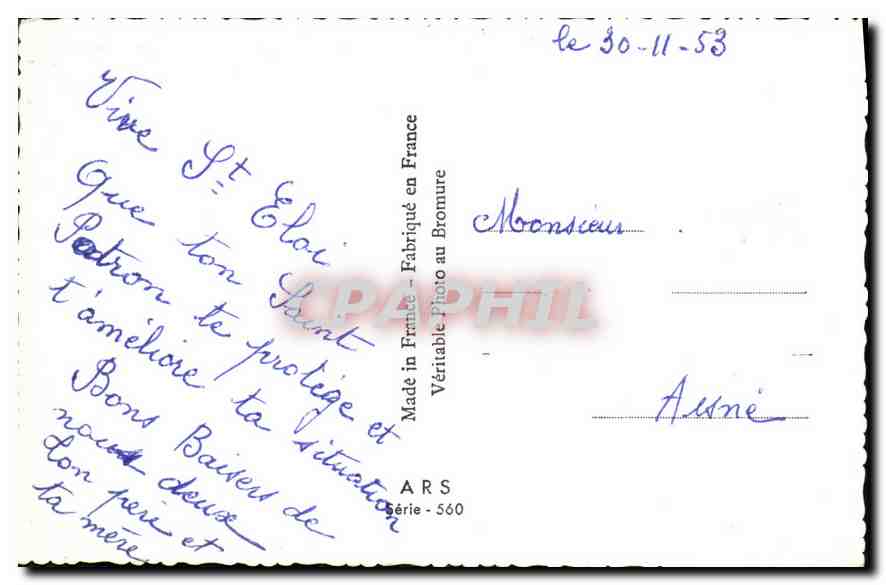 le 30-11-53
Vive St Eloi
Que ton Saint
Patron te protège et
t'améliore ta situation
Bons Baisers de
nous deux
ton père et
ta mère
Made in France - Fabriqué en France
Véritable Photo au Bromure
ARS
Série - 560
Monsieur
CPAPHIL